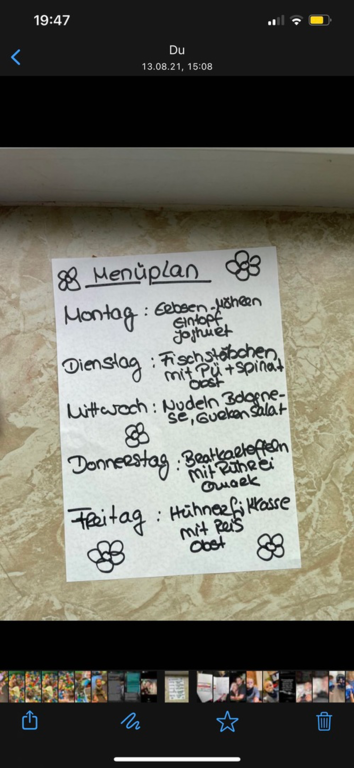 19:47
Du
13.08.21, 15:08
Menüplan
Montag : Erbsen-Möhren
Eintopf
Joghurt
Dienstag : Fischstäbchen
mit Pü + Spinat
Obst
Mittwoch : Nudeln Bologne-
se, Gurkensalat
Donnerstag : Bratkartoffeln
mit Rührei
Quark
Freitag : Hühnerfrikasse
mit Reis
Obst